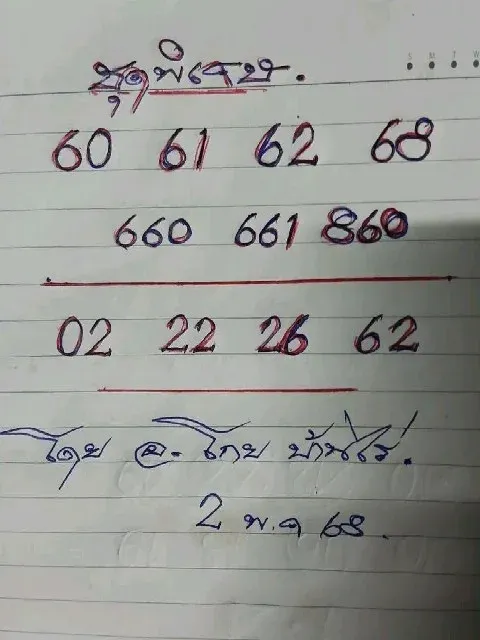 S M T W
ชุดพิเศษ.
60 61 62 68
660 661 860
02 22 26 62
โดย อ. โกย บ้านไร่.
2 พ.ค 68.